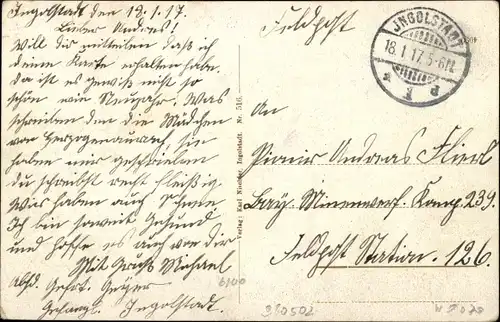 Ingolstadt den 18.1.17.
Lieber Andres!
Will dir mitteilen daß ich
deine Karte erhalten habe.
Da ist es gewiß nicht so
schön wie Neujahr. Was
schreiben den die Mädchen
von Herzogenaurach, sie
haben mir geschrieben
du schreibst recht fleißig.
Wir haben auch Schnee
Ich bin soweit Gesund
und hoffe es auch von dir
Mit Gruß Michael
Absd. Gefr. Geyer
Ingolstadt.
Verlag: Karl Ingolstadt. Nr. 516.
Feldpost
INGOLSTADT
18.1.17.5-6N.
An
Pionier Andreas Flierl
Bay. Minenwerf. Komp 239.
Feldpost Station. 126.
6100
350502